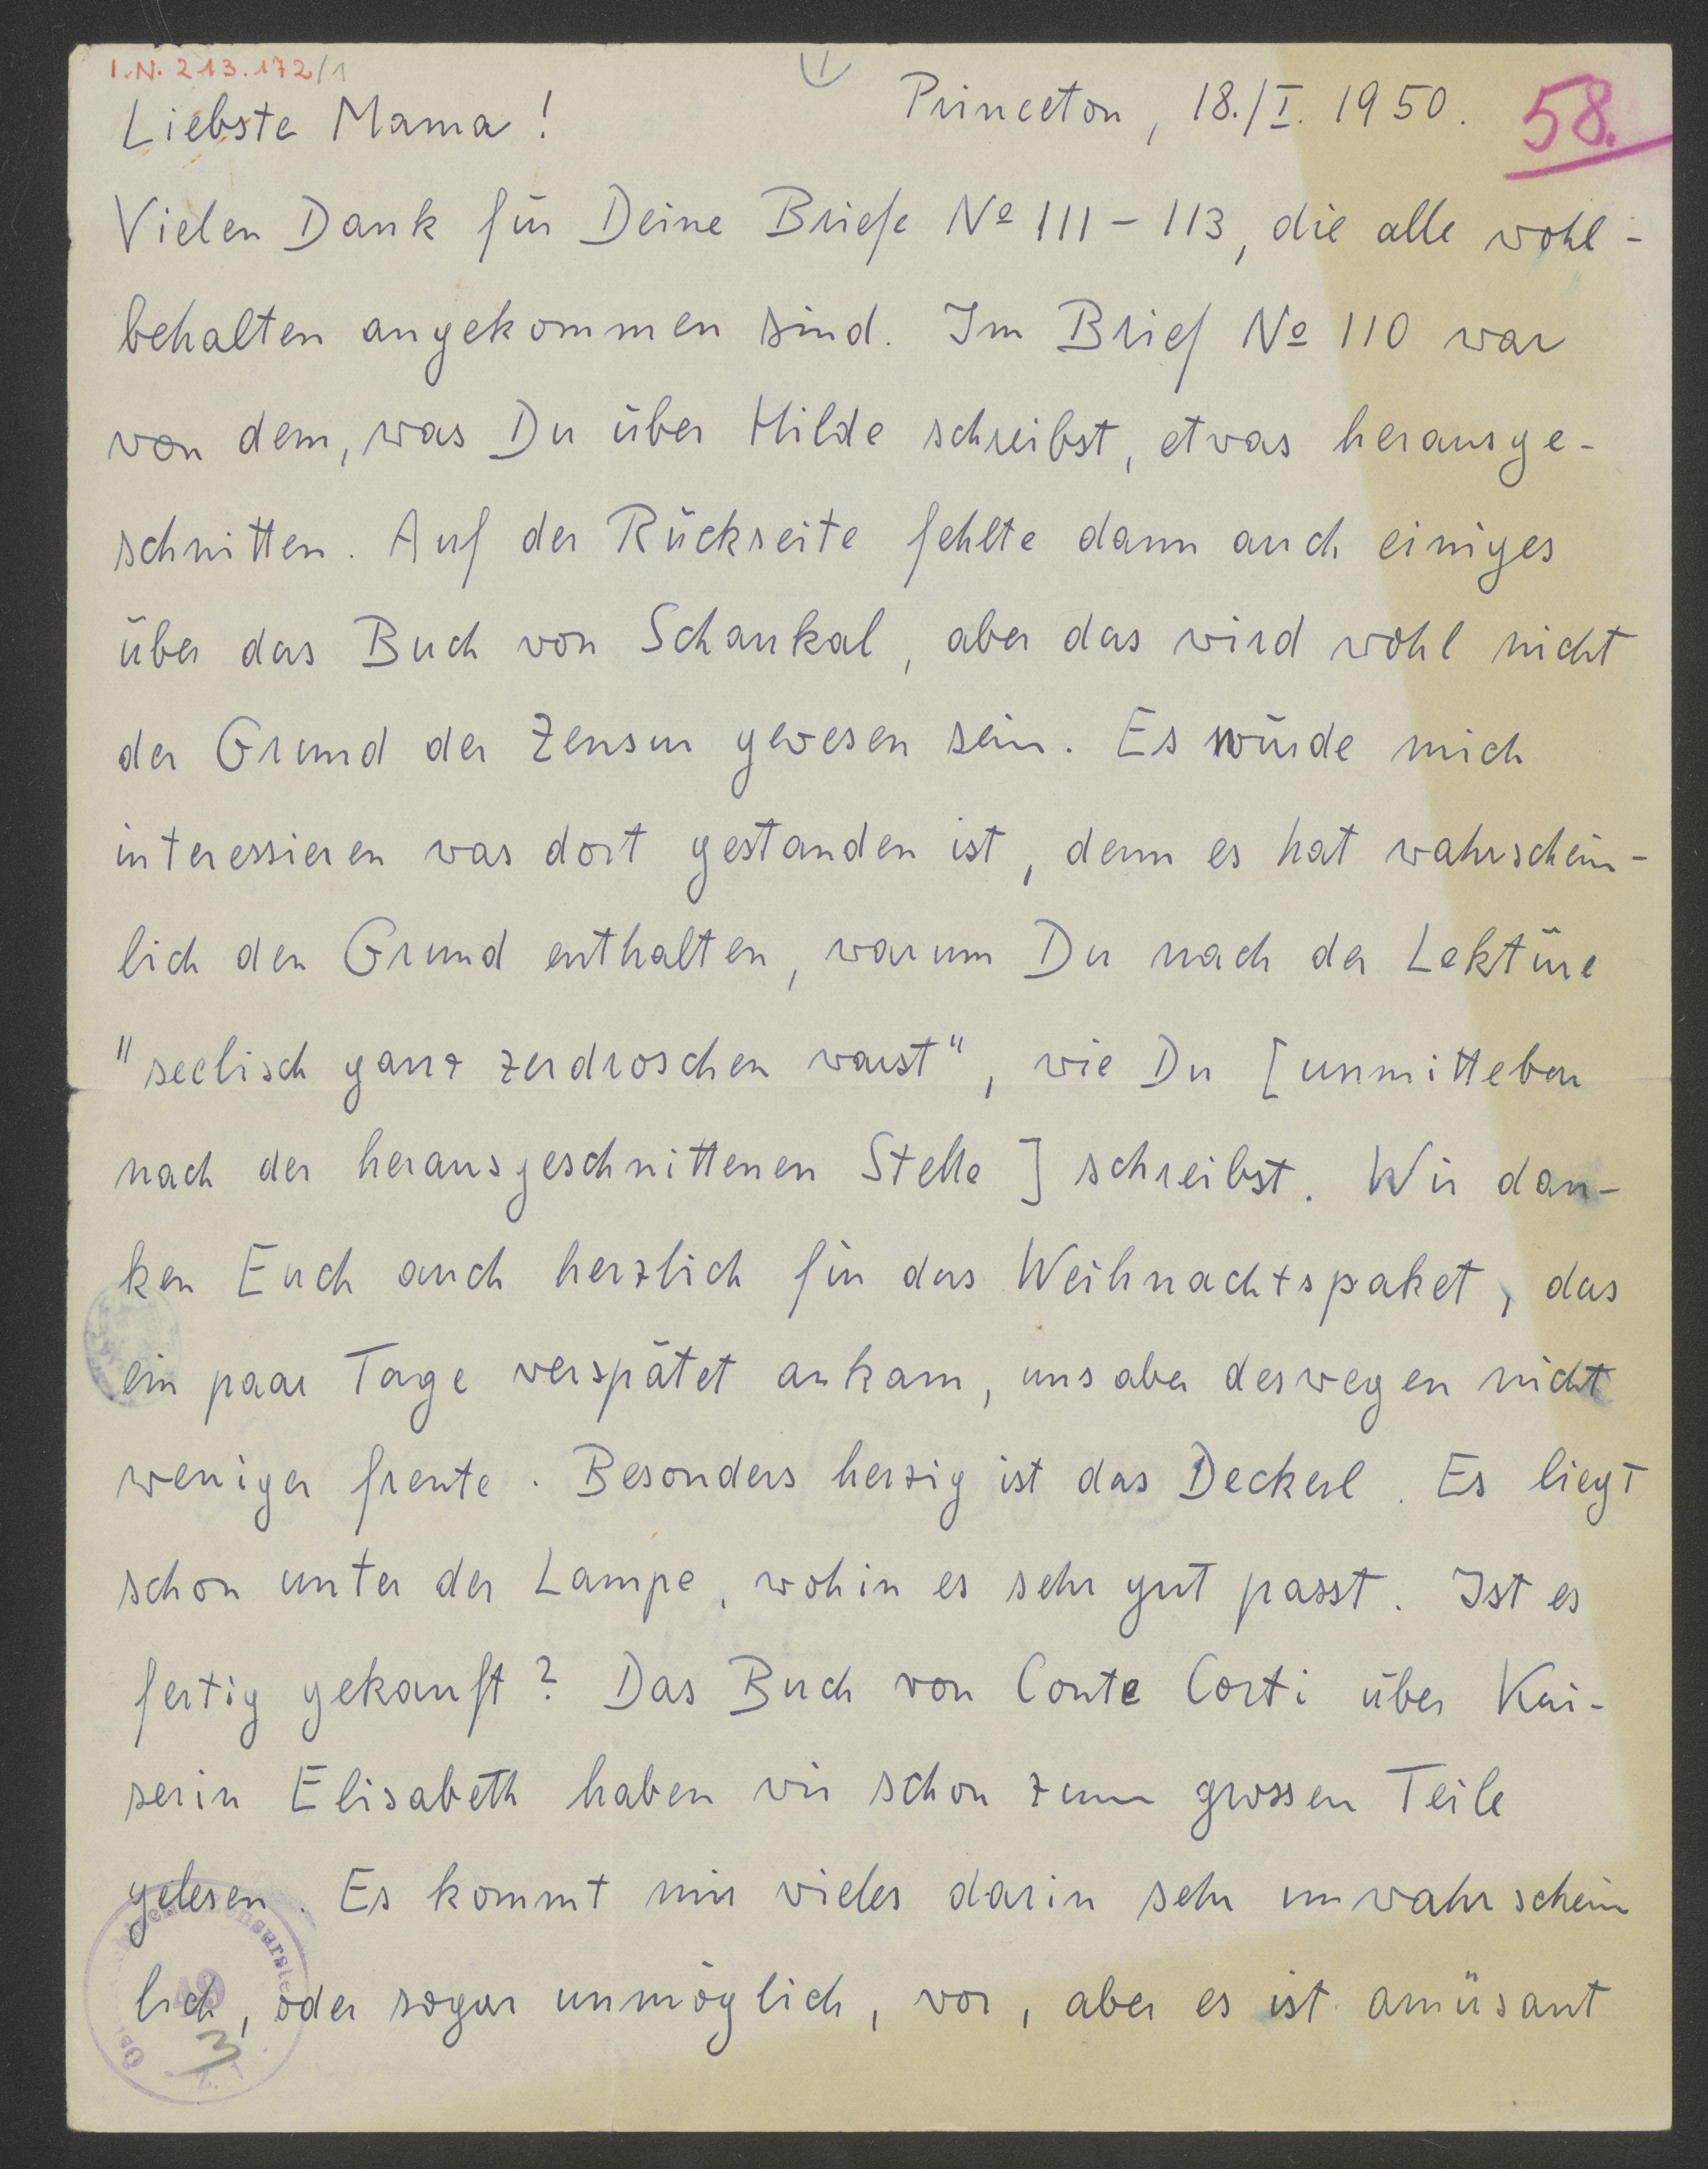 I.N. 213.172/1
Liebste Mama! Princeton, 18./I. 1950. 58.
Vielen Dank für Deine Briefe Nº 111 – 113, die alle wohl-
behalten angekommen sind. Im Brief Nº 110 war
von dem, was Du über Hilde schreibst, etwas herausge-
schnitten. Auf der Rückseite fehlte dann auch einiges
über das Buch von Schaukal, aber das wird wohl nicht
der Grund der Zensur gewesen sein. Es würde mich
interessieren was dort gestanden ist, denn es hat wahrschein-
lich den Grund enthalten, warum Du nach der Lektüre
"seelisch ganz zerdroschen warst", wie Du [unmittelbar
nach der herausgeschnittenen Stelle] schreibst. Wir dan-
ken Euch auch herzlich für das Weihnachtspaket, das
ein paar Tage verspätet ankam, uns aber deswegen nicht
weniger freute. Besonders herzig ist das Deckerl. Es liegt
schon unter der Lampe, wohin es sehr gut passt. Ist es
fertig gekauft? Das Buch von Conte Corti über Kai-
serin Elisabeth haben wir schon zum grossen Teile
gelesen. Es kommt mir vieles darin sehr unwahrschein
lich, oder sogar unmöglich, vor, aber es ist amüsant
3